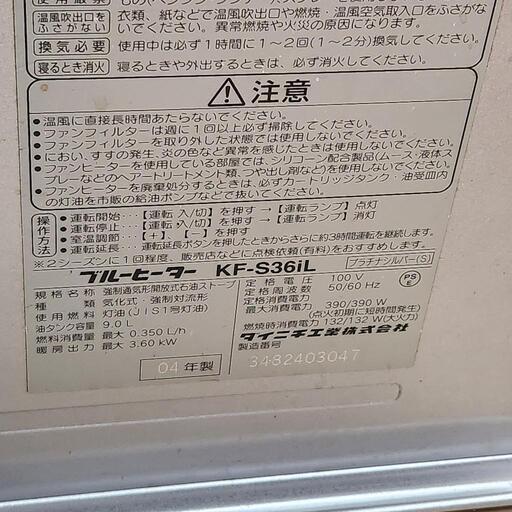 温風吹出口を
ふさがない
衣類、紙などで温風吹出口や燃焼・温風空気取入口をふさが
ないでください。異常燃焼や火災の原因になります。
換気必要
使用中は必ず1時間に1~2回(1~2分)換気してください。
寝るとき消火
寝るときや外出するときは、必ず消火してください。
注意
●温風に直接長時間あたらないでください。
●ファンフィルターは週に1回以上必ず掃除してください。
●ファンフィルターを取り外した状態では使用しないでください。
●におい、すすの発生、炎の色など異常を感じたときは使用しないでください。
●ファンヒーターを使用している部屋では、シリコーン配合製品(ムース・液体ス
プレーなどのヘアートリートメント類、つや出し剤など)を使用しないでください。
●ファンヒーターを廃棄処分するときは、必ずカートリッジタンク・油受皿内
の灯油を市販の給油ポンプなどで抜いてください。
操作方法
●運転開始…【運転 入/切】を押す→【運転ランプ】点灯
●運転停止…【運転 入/切】を押す→【運転ランプ】消灯
●室温調節…【+】【-】を押す
●運転延長…運転延長ボタンを押したときからさらに約3時間運転を継続します。
※2シーズンに1回程度、販売店などに点検依頼(有料)をおすすめします。
ブルーヒーター KF-S36iL
プラチナシルバー(S)
規格名称 強制通気形開放式石油ストーブ
種類 気化式・強制対流形
使用燃料 灯油(JIS1号灯油)
油タンク容量 9.0L
燃料消費量 最大 0.350L/h
暖房出力 最大 3.60kW
定格電圧 100V
定格周波数 50/60Hz
最大消費電力 390/390W
(点火初期に短時間発生)
燃焼時消費電力 132/132W(大火力)
PSE
ダイニチ工業株式会社
04年製
製造番号 3482403047